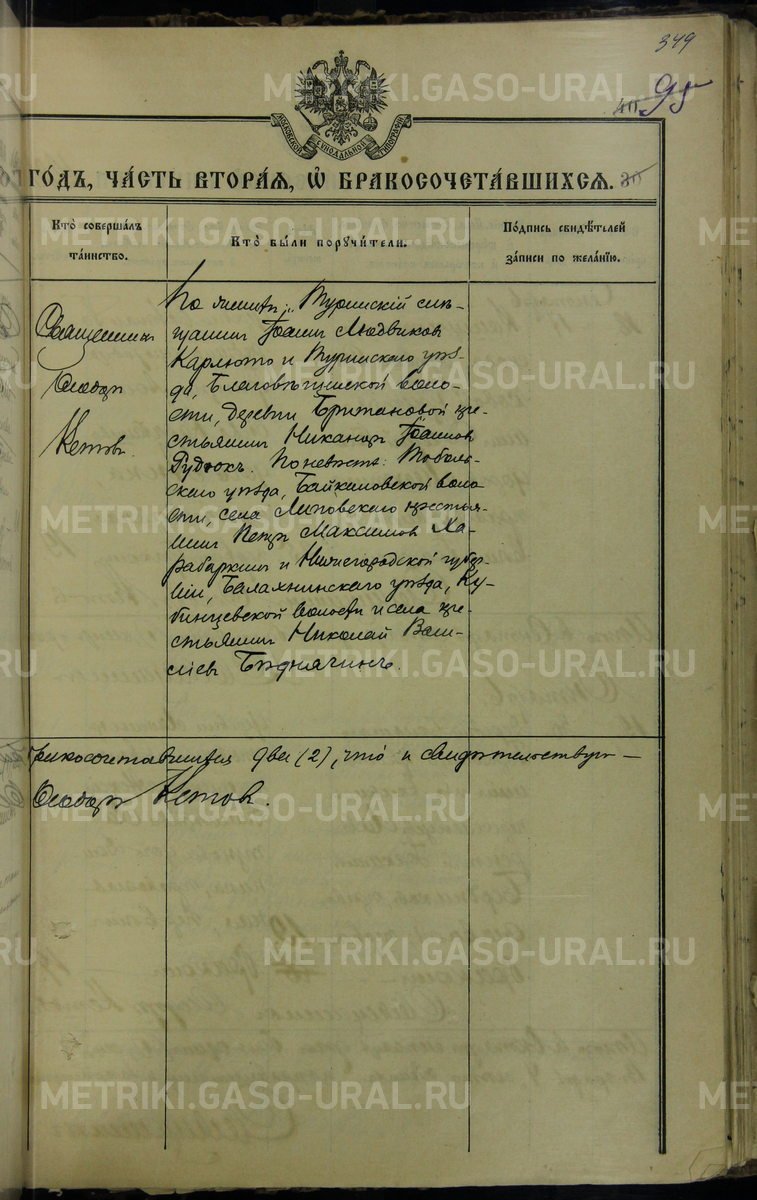 349
95
МОСКОВСКОЙ СѴНОДАЛЬНОЙ ТИПОГРАФІИ
ГО́ДЪ, ЧА́СТЬ ВТОРА́Я, Ѡ҆ БРАКОСОЧЕТА́ВШИХСЯ.
Кто̀ соверша́лъ
та́инство.
Кто̀ бы́ли порꙋчи́тели.
По́дпись свидѣ́телей
за́писи по жела́нїю.
Священникъ
Ѳеодоръ
Кетовъ.
По женихѣ: Туринскій
Іоаннъ Людвиковъ
и Туринскаго уѣз-
да, Благовѣщенской воло-
сти, деревни кре-
стьянинъ Никаноръ Іоанновъ
По невѣстѣ: Тоболь-
скаго уѣзда, Байкаловской воло
сти, села Липовскаго крестья-
нинъ Петръ Максимовъ Ха-
и Нижегородской губер-
ніи, Балахнинскаго уѣзда, Ку-
бинцевской волости и села кре-
стьянинъ Николай Васи-
ліевъ
бракосочетавшихся два (2), что и свидѣтельствую —
Ѳеодоръ Кетовъ.
METRIKI.GASO-URAL.RU